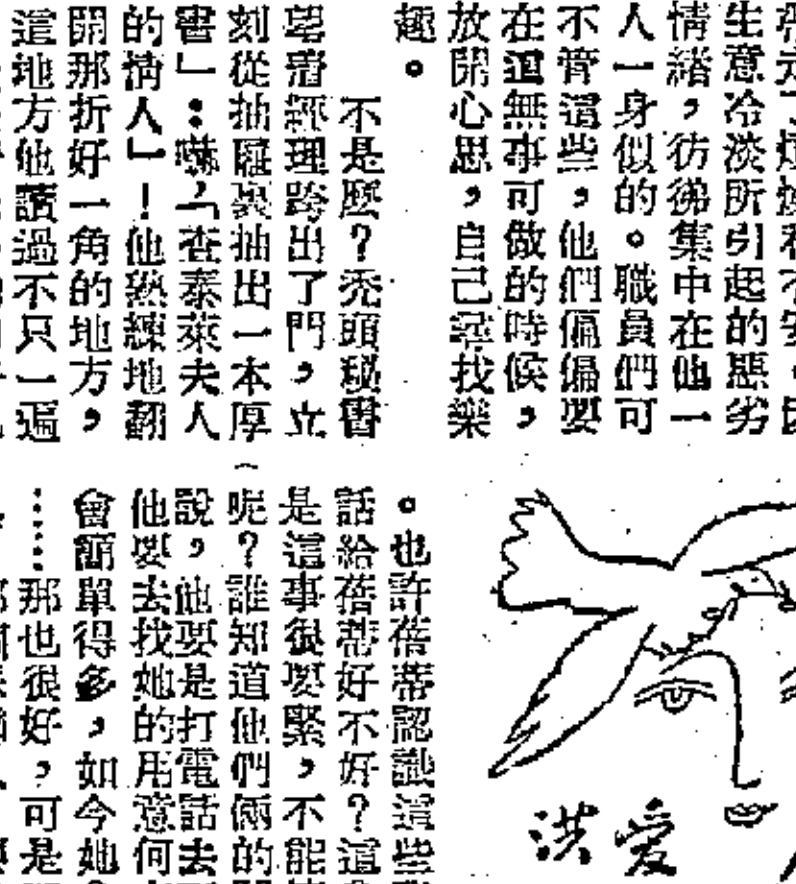 生意冷淡所引起的惡劣
情緒，彷彿集中在他一
人一身似的。職員們可
不管這些，他們偏偏要
在這無事可做的時候，
放開心思，自己尋找樂
趣。
不是麼？禿頭秘書
望着經理跨出了門，立
刻從抽屜裏抽出一本厚
書」：嚇「查泰萊夫人
的情人」！他熟練地翻
開那折好一角的地方，
這地方他讀過不只一遍
。也許蓓蒂認識這些
話給蓓蒂好不好？這
是這事很要緊，不能
呢？誰知道他們倆的
說，他要是打電話去
他要去找她的用意何
會簡單得多，如今她
⋯⋯那也很好，可是
洪 愛